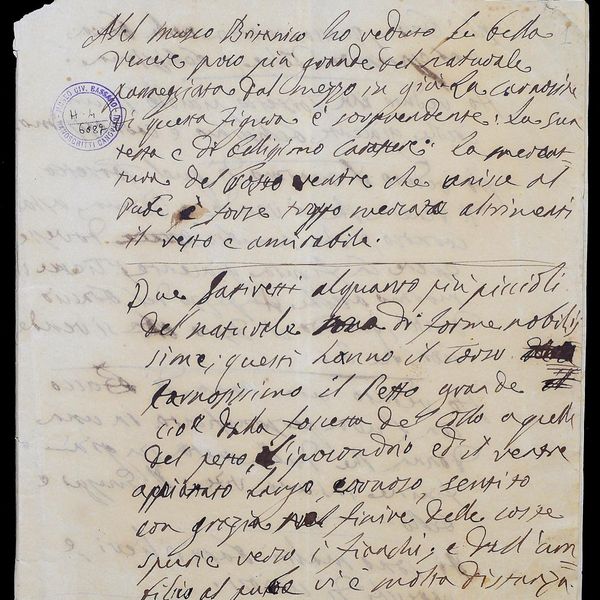 Nel museo Britanico ho veduto la bella
Venere poco più grande del naturale
panegiata dal mezzo in giù. La carnosità
di questa figura è sorprendente: La sua
testa è di bellissimo Carattere: La
tura del Posto ventre che unisce al
Pube è forze troppo altrimenti
il resto è amirabile.
Due Satiretti alquanto più piccioli
del naturale di forme nobilis
sime; questi hanno il Torso
Carnosissimo il Petto grande
cioè dalla fossetta del Collo a quella
del petto, L'ipocondrio ed il ventre
appianato largo carnoso, sentito
con grazia nel finire delle coste
spurie verso i fianchi; e dall'um
bilico al pube vi è molta distanza
MUSEO CIV. BASSANO
H-4
6087
MANOSCRITTI CANOVIANI